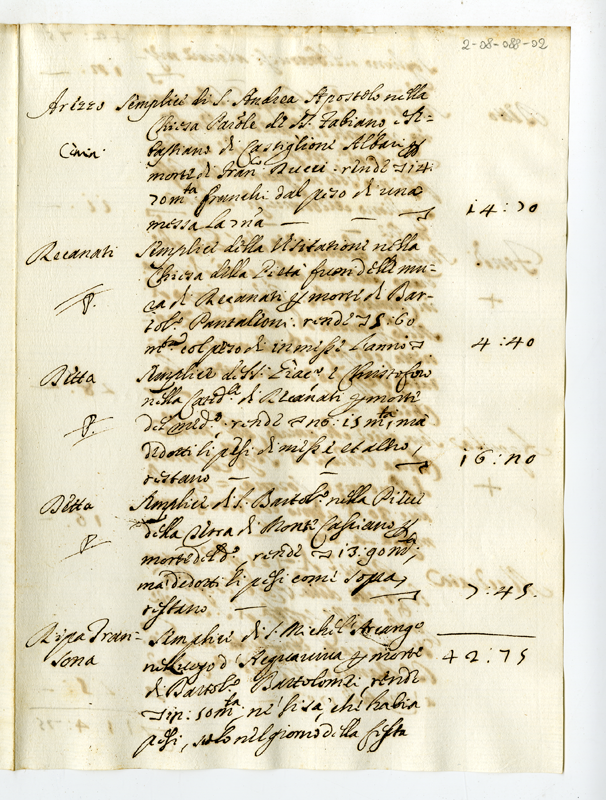 2-08-088-02
Arezzo Semplice di S. Andrea Apostolo nella
Chiesa Par.le de SS. Fabiano e Se-
Civia bastiano di Castiglione Alberi p
morte di Fran.co Ricci rende 14:
70 m.ta franchi dal peso di una
messa la m.a 14:70
Recanati Semplice della Visitatione nella
Chiesa della Pietà fuori delle mu-
P. ra di Recanati p morte di Bar-
tol.o Pantaloni rende 5:60
m.ta col peso di in messe l'anno 4:40
Detta Semplice de SS. Giac.o e Christoforo
nella Cated.le di Recanati p morte
P. del med.o rende 15 m.ta, ma
dedotti li pesi di messe et altro,
restano 16:
Detta Semplice di S. Bartol.o nella Pieve
della Terra di Monte Cassiano p
P. morte del d.o rende 13:90 m.ta,
ma dedotti li pesi come sopra,
restano 7:45.
Ripa Tran- Semplice di S. Michele Arcangelo
sona nel luogo d'Acquaviva p morte 42:75
di Bartol.o Bartolomei rende
50 m.ta, nè si sà, che habia
pesi, solo nel giorno della festa